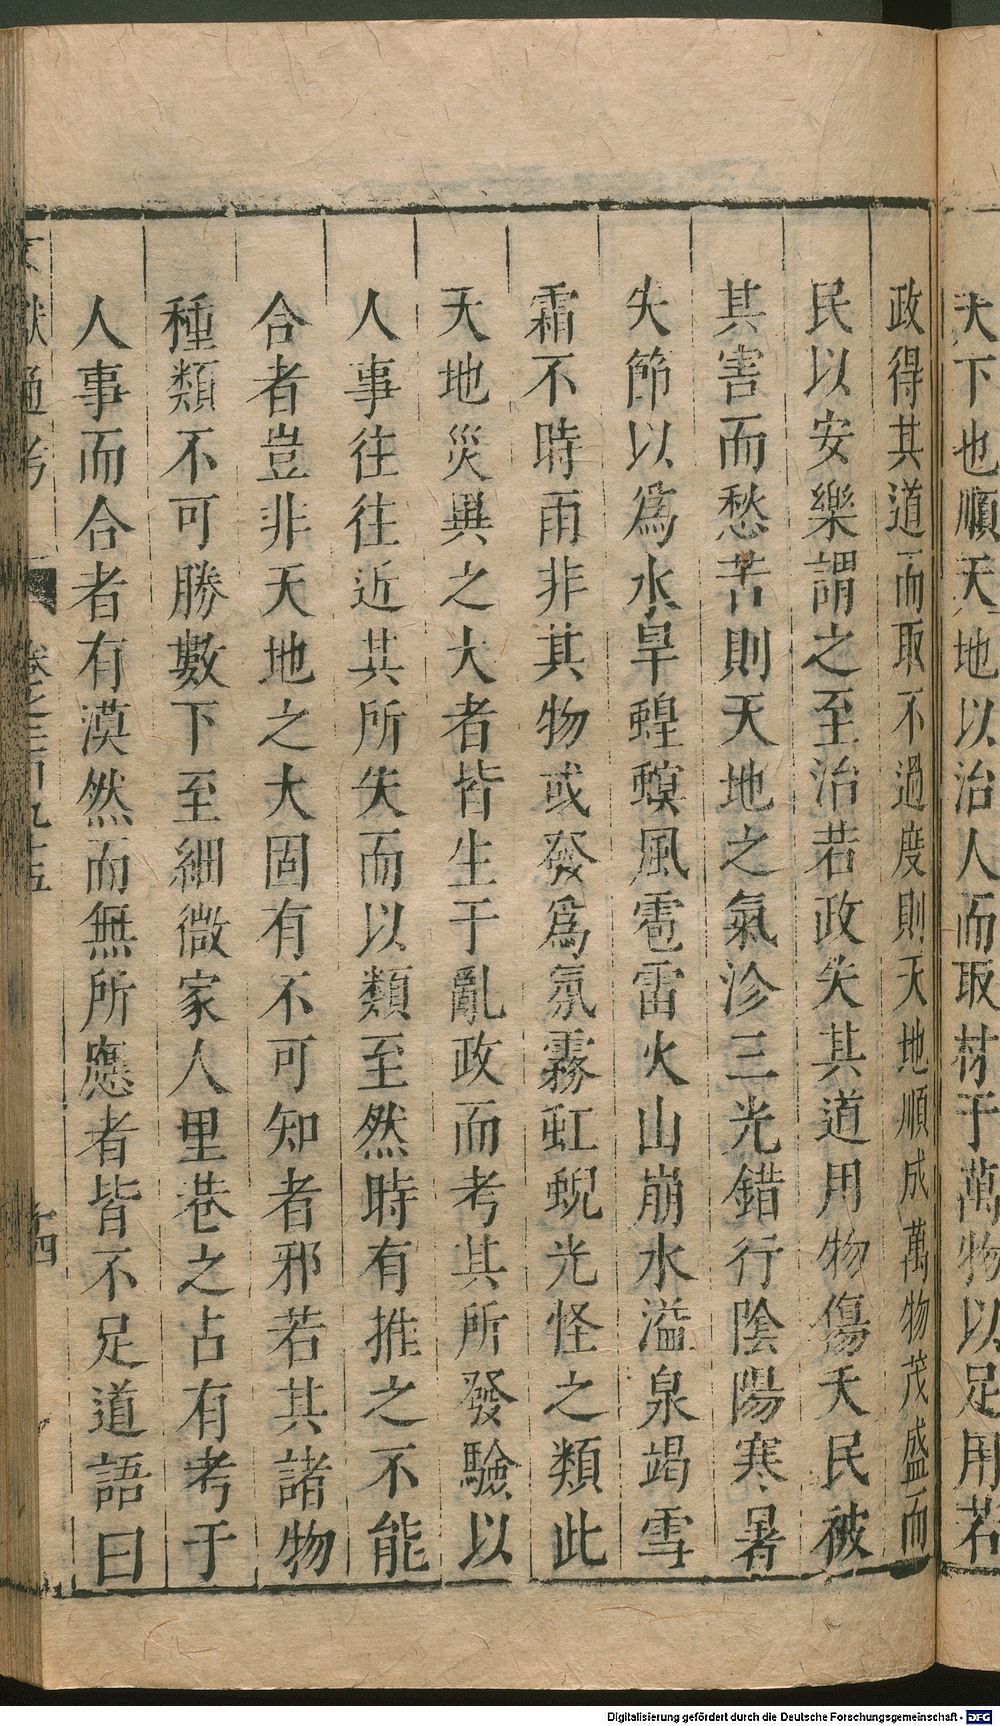 大下也順天地以治人而取材于萬物以足用若
政得其道而取不過度則天地順成萬物茂盛而
民以安樂謂之至治若政失其道用物傷夭民被
其害而愁苦則天地之氣沴三光錯行陰陽寒暑
失節以爲水旱蝗螟風雹雷火山崩水溢泉竭雪
霜不時雨非其物或發爲氛霧虹蜺光怪之類此
天地災異之大者皆生于亂政而考其所發驗以
人事往往近其所失而以類至然時有推之不能
合者豈非天地之大固有不可知者邪若其諸物
種類不可勝數下至細微家人里巷之占有考于
人事而合者有漠然而無所應者皆不足道語曰
文獻通考 卷之二百九十五 十四
Digitalisierung gefördert durch die Deutsche Forschungsgemeinschaft - DFG